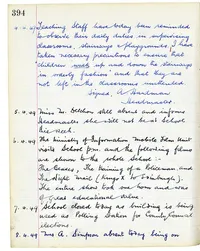 394
4.4.49 Teaching Staff have today been reminded
to observe their daily duties in supervising
classrooms, stairways & playgrounds. I have
taken necessary precautions to ensure that
children walk up and down the stairways
in orderly fashion and that they are
not left in the classrooms unattended.
Signed, A. Boardman
Headmaster
5.4.49 Miss M. still absent and informs
Headmaster she will not be in School
this week.
6.4.49 The Ministry of Information Mobile Film Unit
visits School 9am and the following films
are shown to the whole School :-
The Cossacks, The training of a Policeman and
The Night Mail (Kings X to Edinburgh).
The entire show took one hour and was
of great educational value.
7.4.49 School closed today as building is being
used as Polling Station for County Council
elections.
8.4.49 Mrs A. Simpson absent today being on